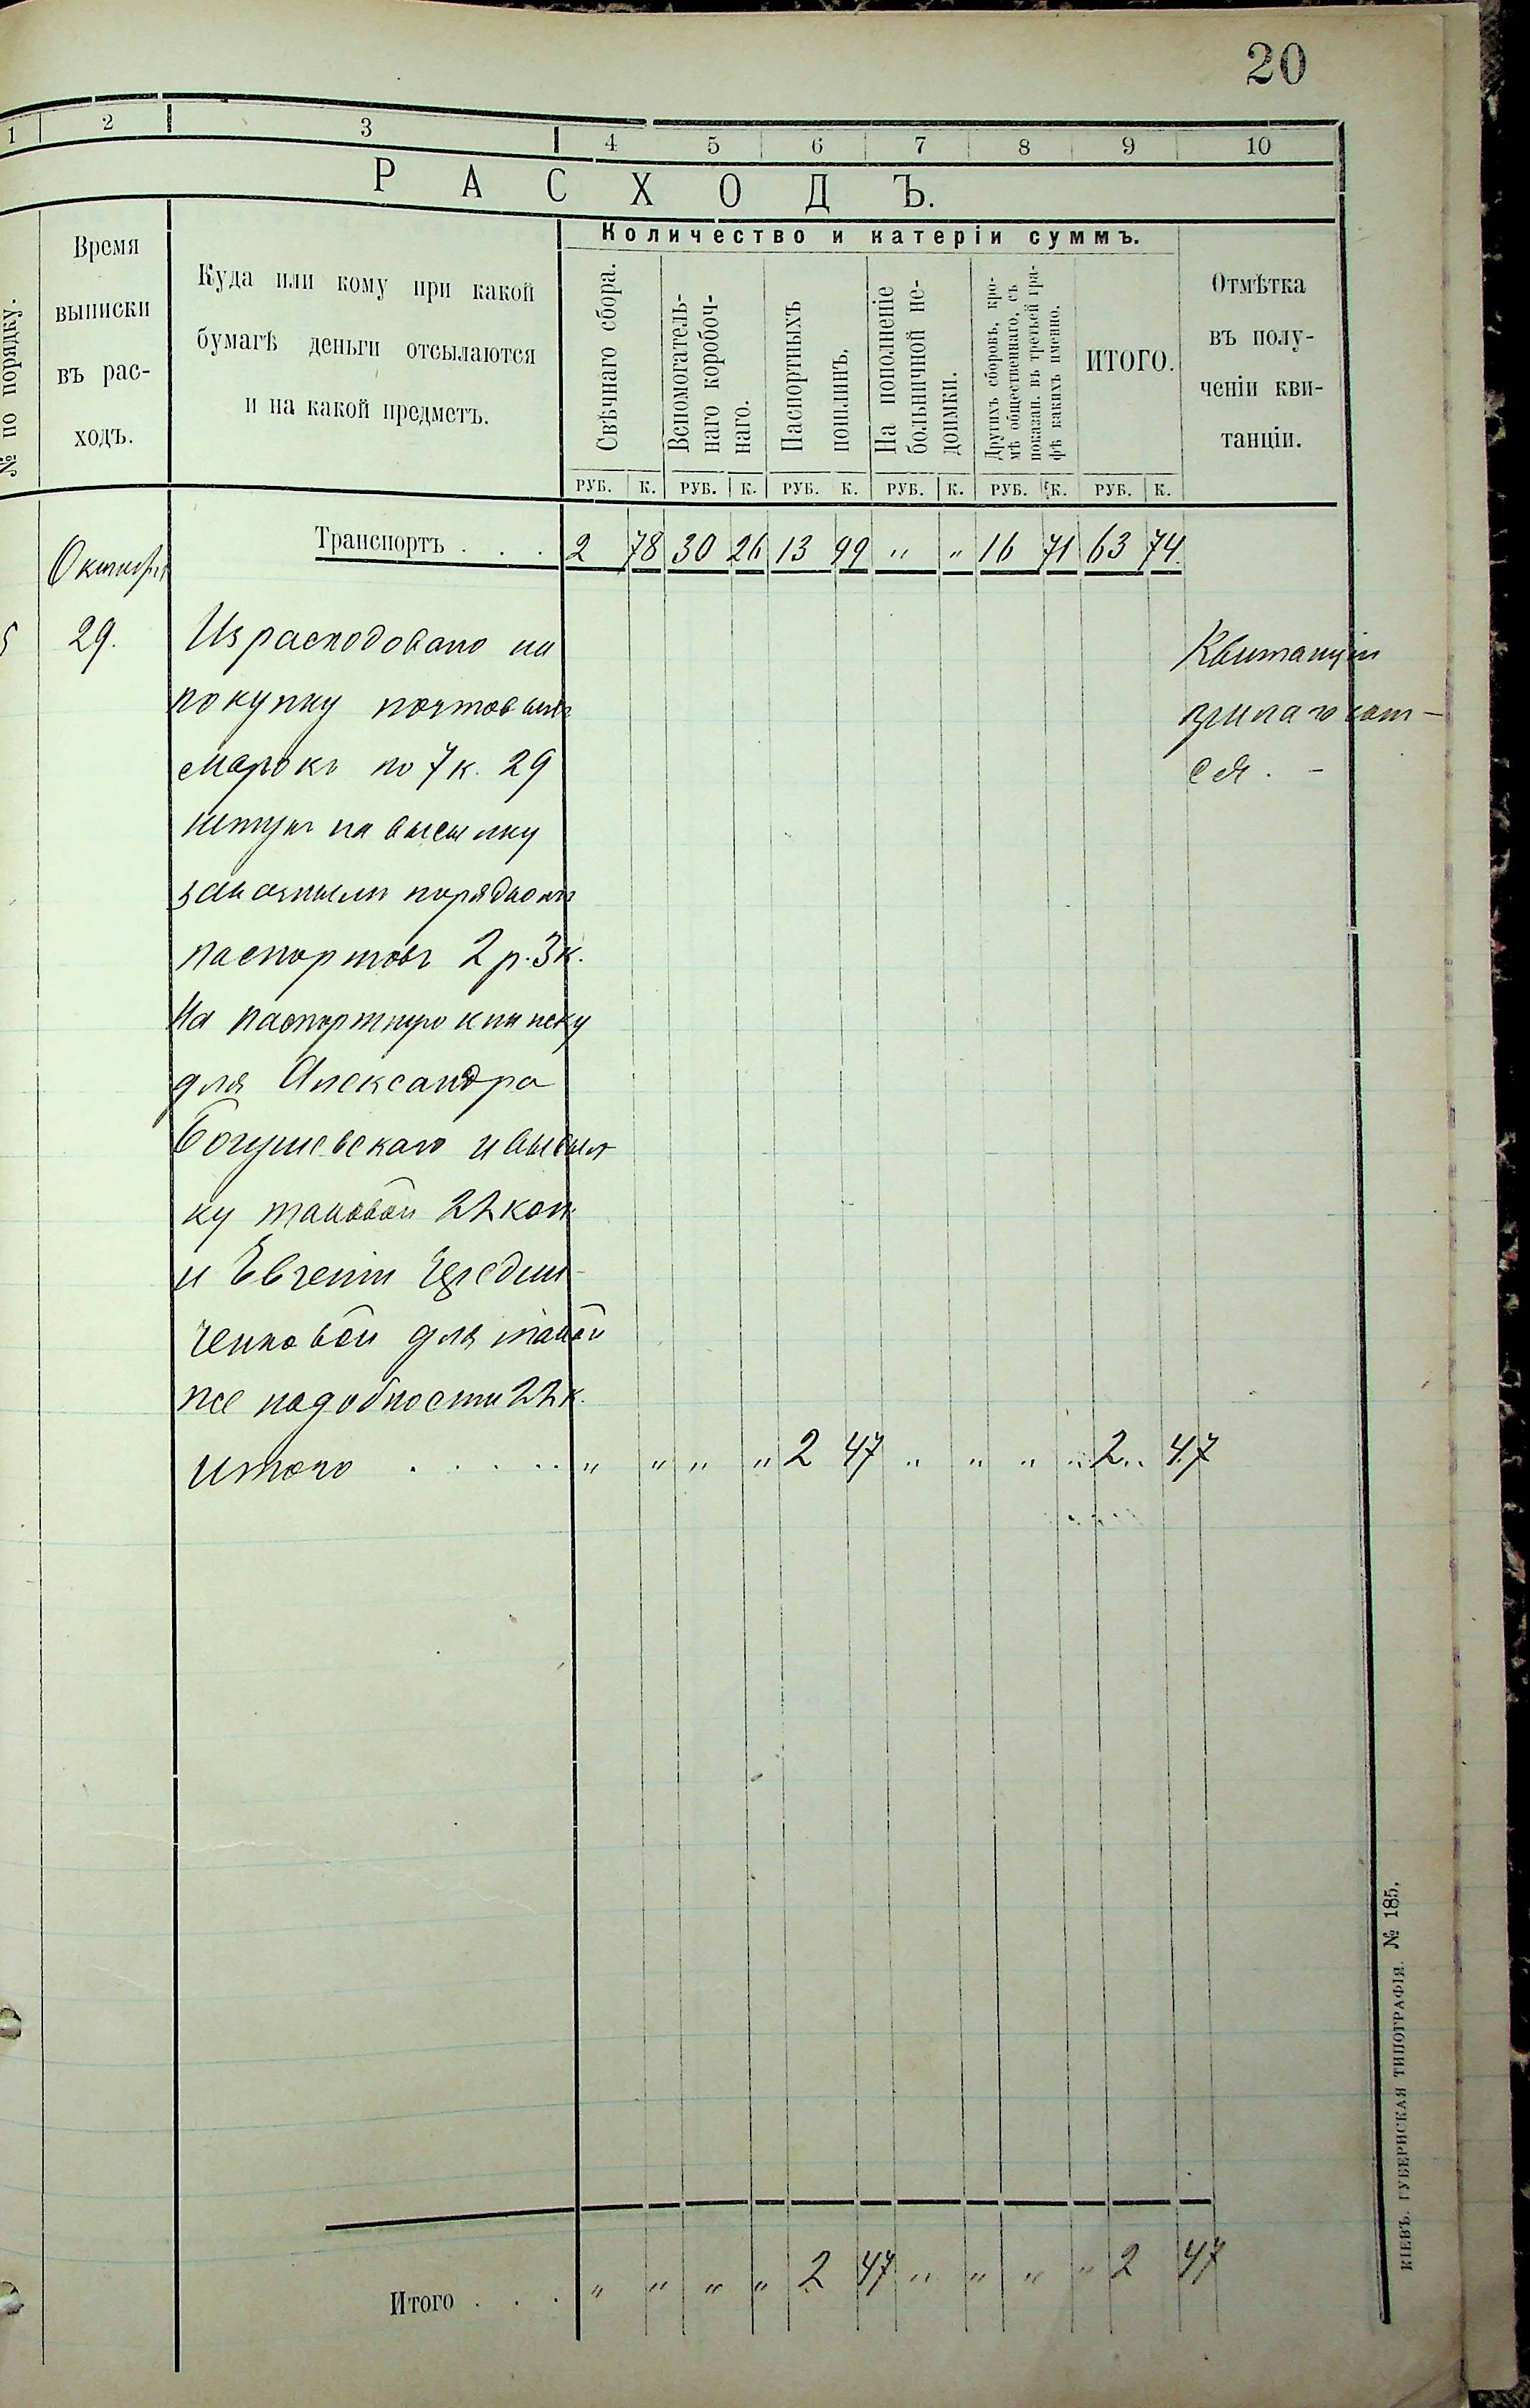 20
1 2 3 4 5 6 7 8 9 10
РАСХОДЪ.
№ по порядку.
Время
выписки
въ рас-
ходъ.
Куда или кому при какой
бумагѣ деньги отсылаются
и на какой предметъ.
Количество и катеріи суммъ.
Свѣчнаго сбора.
Вспомогатель-
наго коробоч-
наго.
Паспортныхъ
пошлинъ.
На пополненіе
больничной не-
доимки.
Другихъ сборовъ, кро-
мѣ общественнаго, съ
показан. въ третьей гра-
фѣ какихъ именно.
ИТОГО.
Отмѣтка
въ полу-
ченіи кви-
танціи.
РУБ. К. РУБ. К. РУБ. К. РУБ. К. РУБ. К. РУБ. К.
Транспортъ . . . 2 78 30 26 13 99 " " 16 71 63 74.
Октября
5 29. Израсходовано на
покупку почтовыхъ
марокъ по 7 к. 29
штукъ на высылку
заказнымъ порядкомъ
паспортовъ 2 р. 3 к.
На паспортную книжку
для Александра
Богушевскаго и высыл
ку таковой 22 коп
и Евгеніи
ченковой для такой
же надобности 22 к.
итого . . . . . " " " " 2 47 " " " " 2 47
Квитанціи
прилагают-
ся. -
Итого . . . " " " " 2 47 " " " " 2 47
КІЕВЪ. ГУБЕРНСКАЯ ТИПОГРАФІЯ. № 185.